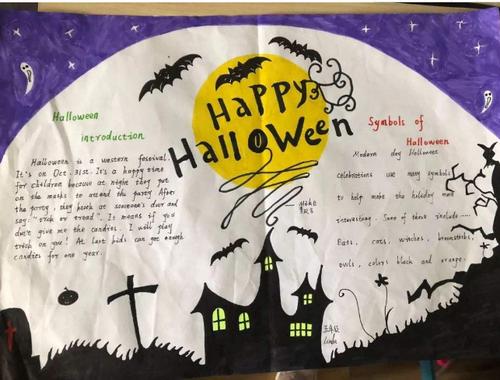 Happy
Halloween
Halloween
introduction
Halloween is a western festival.
It's on Oct. 31st. It's a happy time
for children because at night they put
on the masks to attend the party After
the party, they knock at someone's door and
say: "trick or treat". It means if you
don't give me the candies. I will play
trick on you! At last kids can get enough
candies for one year.
Symbols of
Halloween
Modern day Halloween
celebrations use many symbols
to help make the holiday more
interesting. Some of these include.....
Bats, cats, witches, broomsticks,
owls, colors black and orange.
Linda